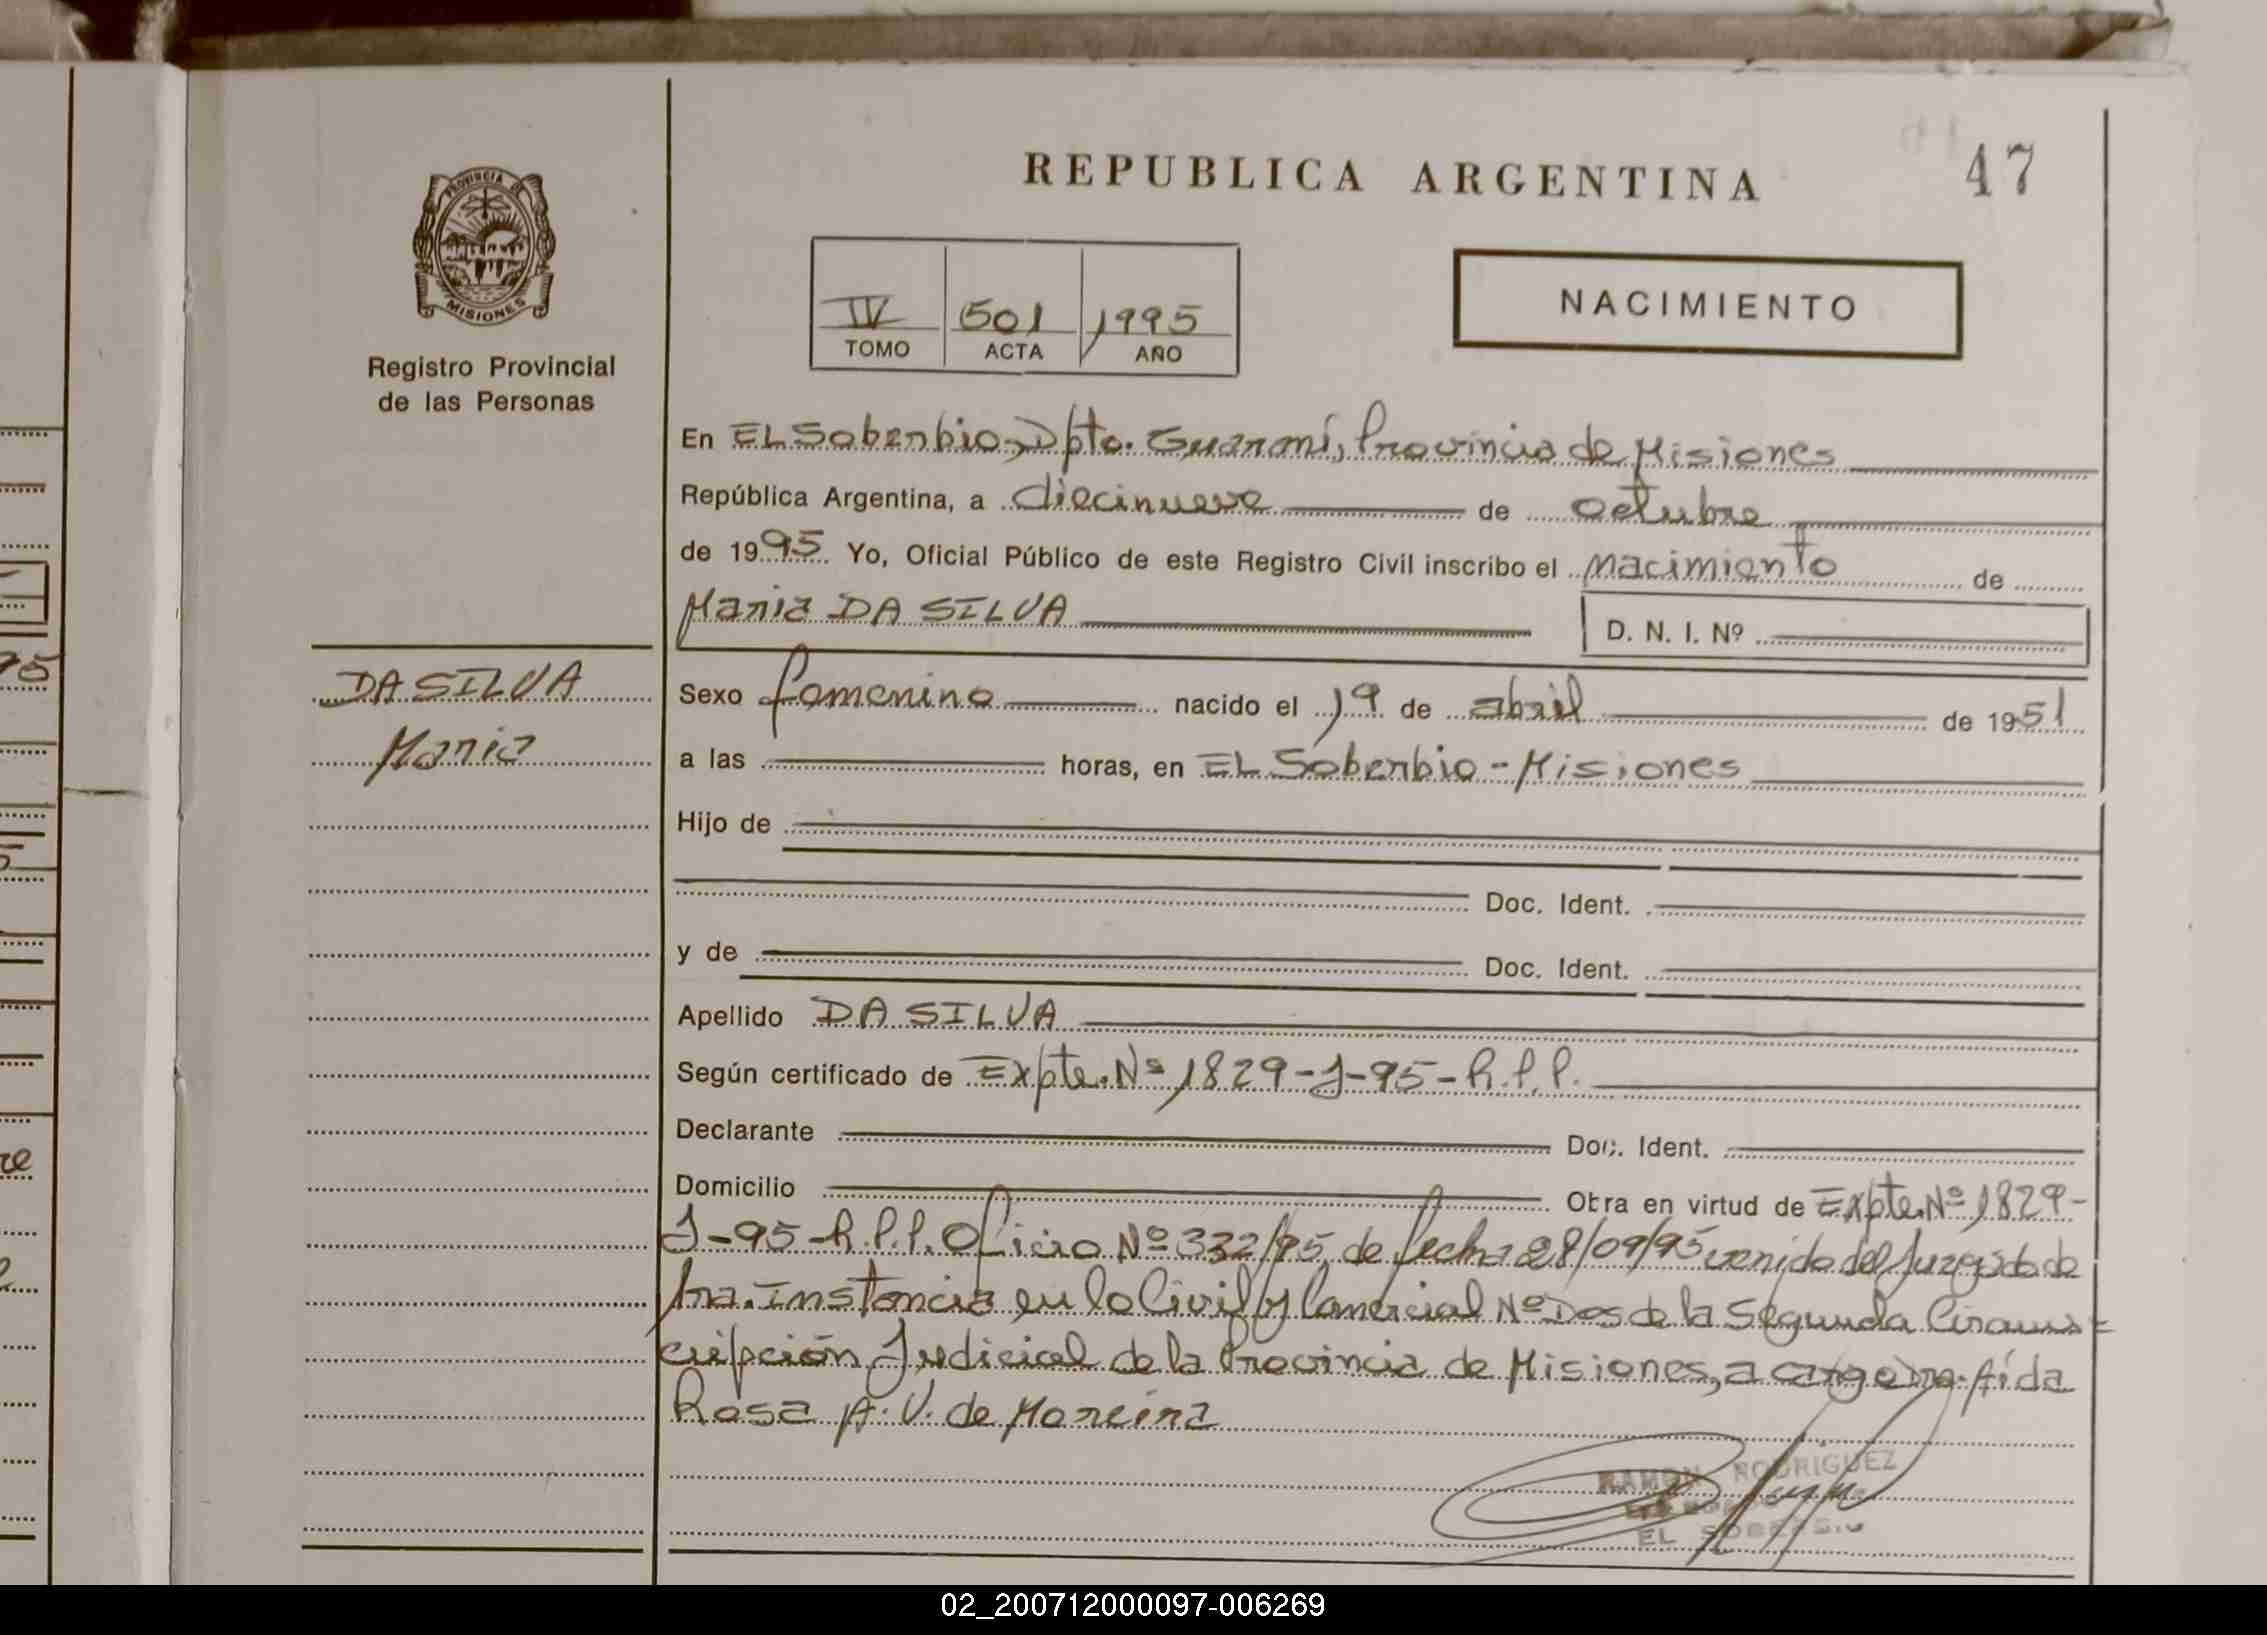 PROVINCIA DE
MISIONES
Registro Provincial
de las Personas
DA SILVA
Maria
REPUBLICA ARGENTINA
47
IV 501 1995
TOMO ACTA AÑO
NACIMIENTO
En EL Soberbio, Dpto. Guaraní, Provincia de Misiones
República Argentina, a diecinueve de octubre
de 1995 Yo, Oficial Público de este Registro Civil inscribo el nacimiento de
Maria DA SILVA D. N. I. Nº
Sexo femenino nacido el 19 de abril de 1951
a las horas, en EL Soberbio - Misiones
Hijo de
Doc. Ident.
y de Doc. Ident.
Apellido DA SILVA
Según certificado de Expte. Nº 1829-J-95-R.P.P.
Declarante Doc. Ident.
Domicilio Obra en virtud de Expte. Nº 1829-
J-95-R.P.P. Oficio Nº 332/95 de fecha 28/09/95 venido del Juzgado de
1ra. Instancia en lo Civil y Comercial Nº Dos de la Segunda Circuns=
cripción Judicial de la Provincia de Misiones, a cargo Dra. Aída
Rosa A. V. de Moreira
RAMON RODRIGUEZ
EL SOBERBIO
02_200712000097-006269